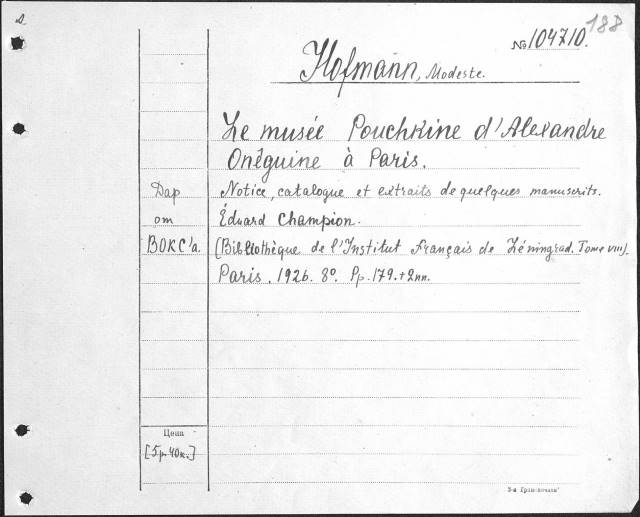 188
№ 104710.
Hofmann, Modeste.
Le musée Pouchkine d'Alexandre
Onêguine à Paris.
Дар Notice, catalogue et extraits de quelques manuscrits.
от Éduard Champion.
ВОКС'а. (Bibliothèque de l'Institut Français de Léningrad. Tome VIII).
Paris. 1926. 8º. Pp. 179.+2nn.
Цена
[5р.40к.]